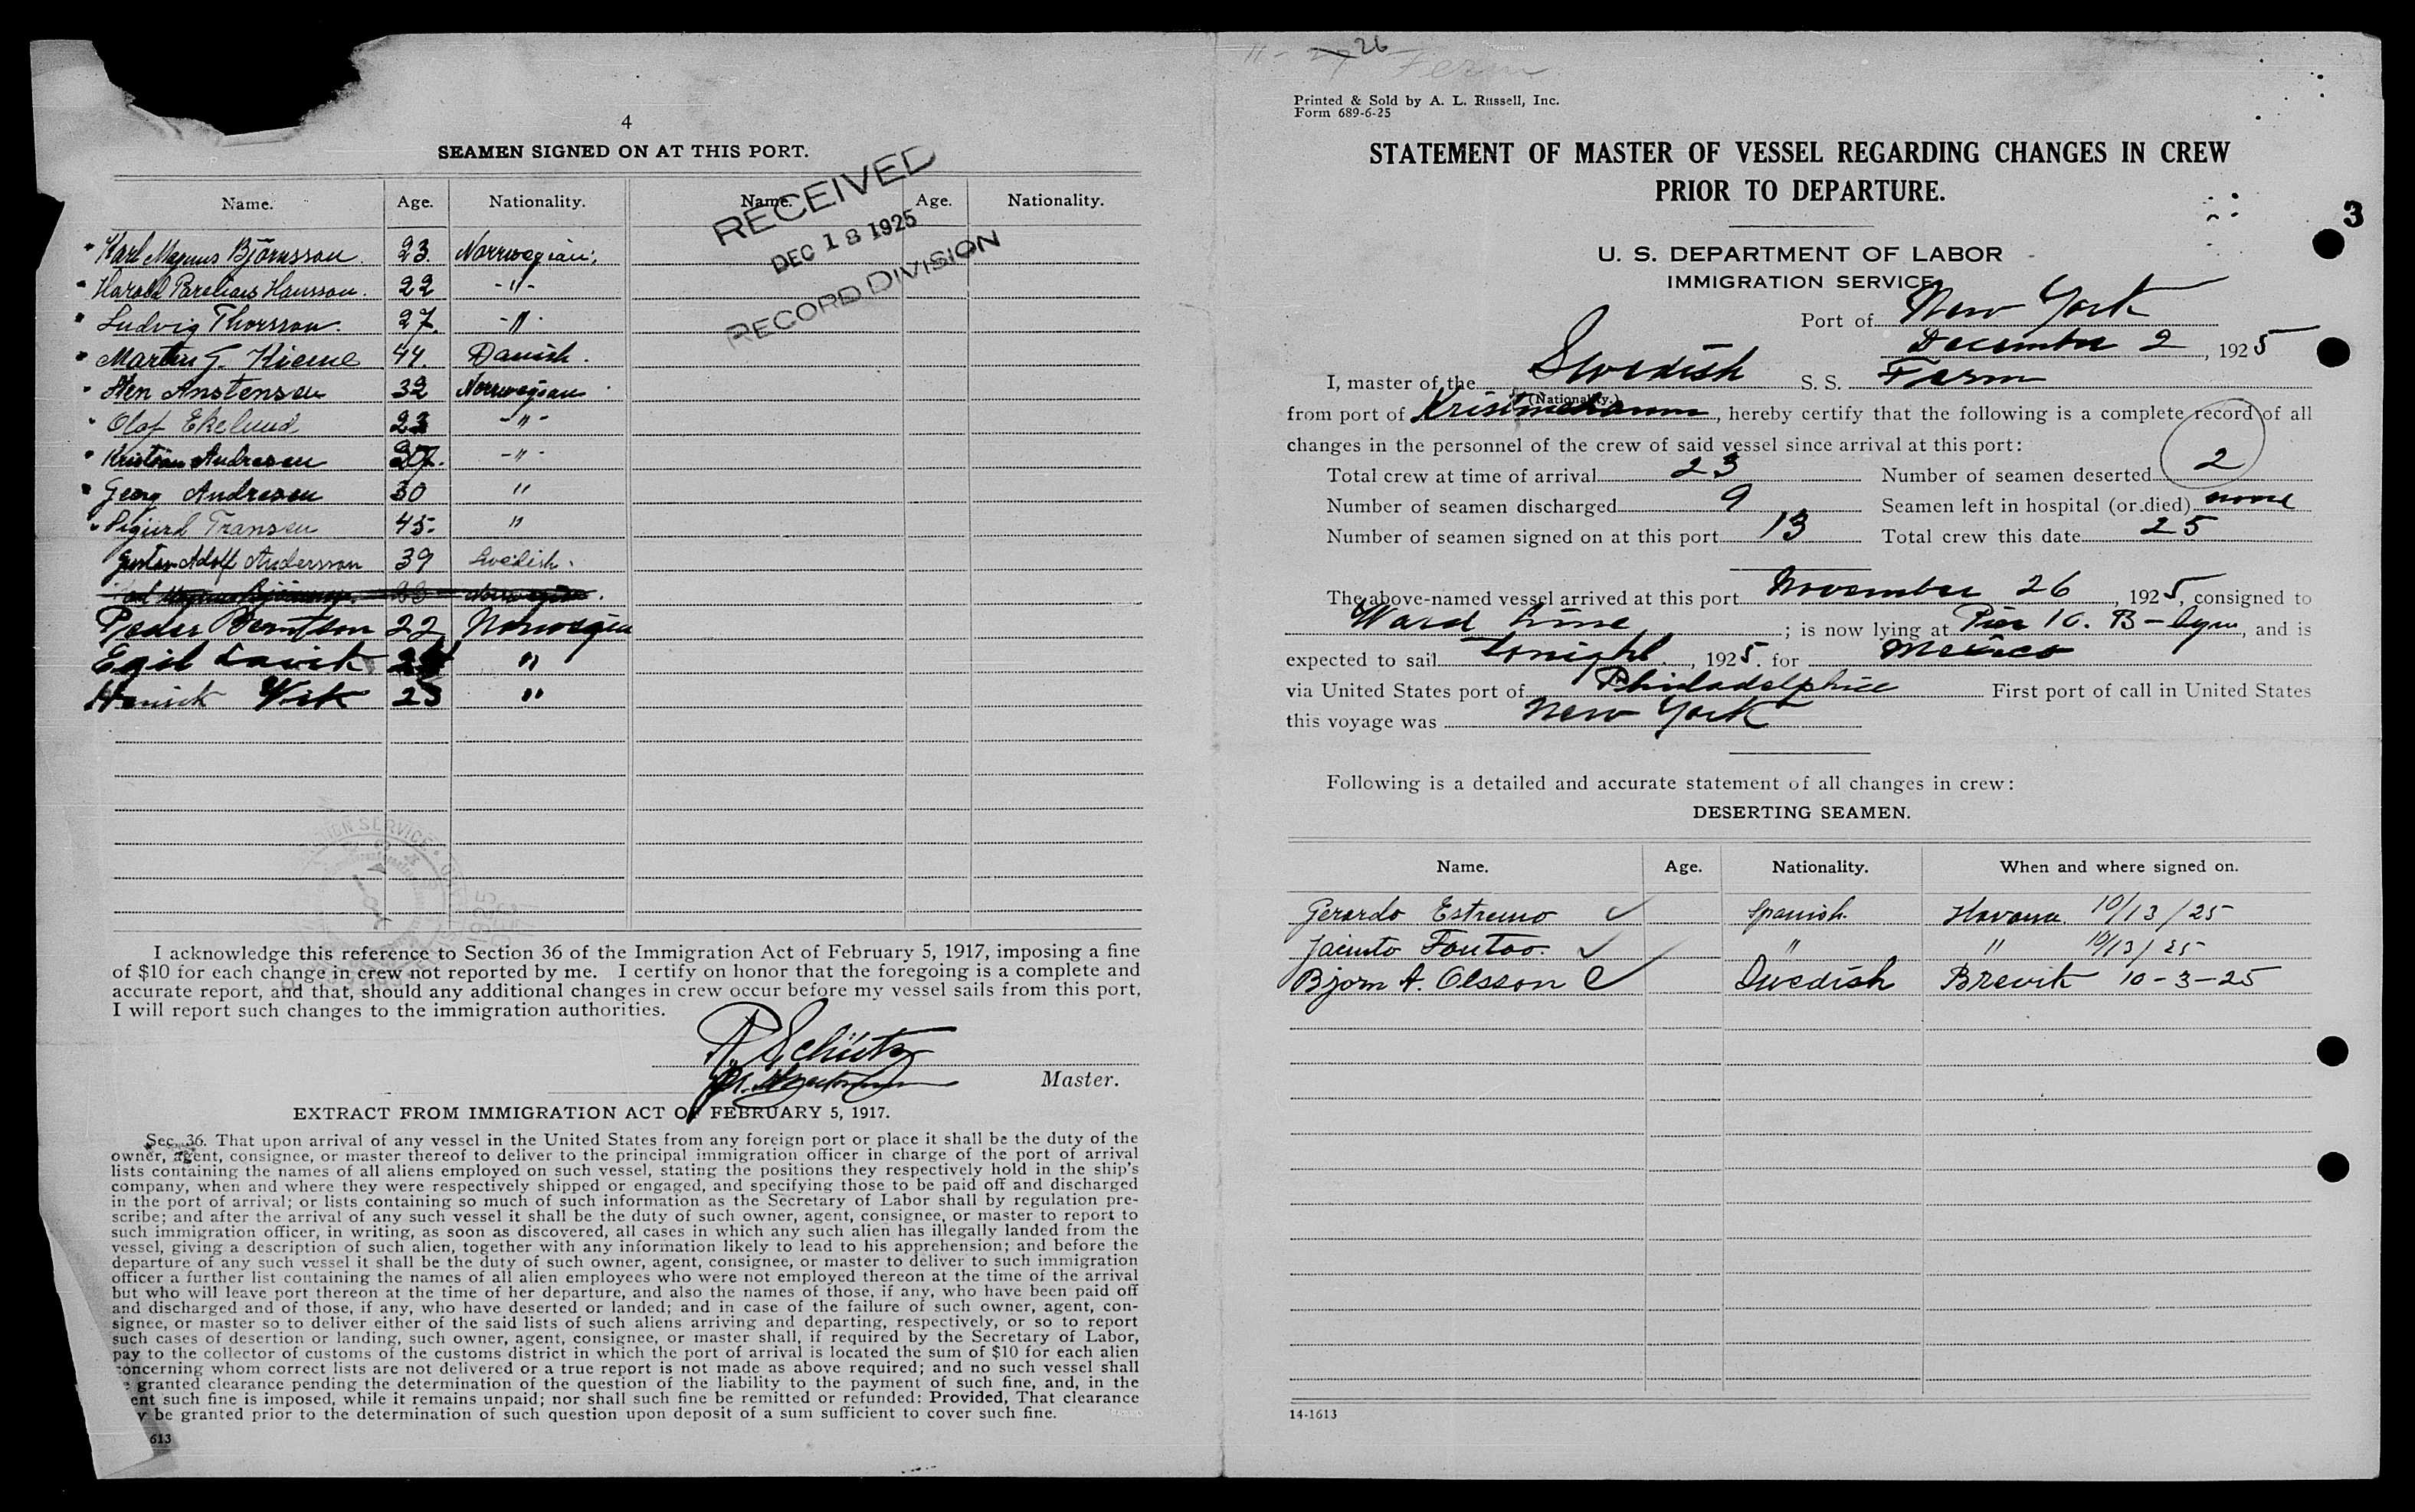 4
SEAMEN SIGNED ON AT THIS PORT.
RECEIVED
DEC 18 1925
RECORD DIVISION
Name. Age. Nationality. Name. Age. Nationality.
Karl Magnus Björnsson. 23. Norrwegian.
Harold Hansson. 22 -"-
Ludvig Thorsson. 27. -"-
Martin G. 44. Danish.
Sten Anstensen 32 Norrwegian
Olof Ekelund 23 -"-
Kristian Andresen 37. -"-
Georg Andresen 30 "
Sigurd Fransen 45. "
Gustav Adolf Andersson 39 Swedish.
Peder Berntsen 22 Norwegian
Egil "
Wik 25 "
I acknowledge this reference to Section 36 of the Immigration Act of February 5, 1917, imposing a fine
of $10 for each change in crew not reported by me. I certify on honor that the foregoing is a complete and
accurate report, and that, should any additional changes in crew occur before my vessel sails from this port,
I will report such changes to the immigration authorities.
Schütz
Master.
EXTRACT FROM IMMIGRATION ACT OF FEBRUARY 5, 1917.
Sec. 36. That upon arrival of any vessel in the United States from any foreign port or place it shall be the duty of the
owner, agent, consignee, or master thereof to deliver to the principal immigration officer in charge of the port of arrival
lists containing the names of all aliens employed on such vessel, stating the positions they respectively hold in the ship's
company, when and where they were respectively shipped or engaged, and specifying those to be paid off and discharged
in the port of arrival; or lists containing so much of such information as the Secretary of Labor shall by regulation pre-
scribe; and after the arrival of any such vessel it shall be the duty of such owner, agent, consignee, or master to report to
such immigration officer, in writing, as soon as discovered, all cases in which any such alien has illegally landed from the
vessel, giving a description of such alien, together with any information likely to lead to his apprehension; and before the
departure of any such vessel it shall be the duty of such owner, agent, consignee, or master to deliver to such immigration
officer a further list containing the names of all alien employees who were not employed thereon at the time of the arrival
but who will leave port thereon at the time of her departure, and also the names of those, if any, who have been paid off
and discharged and of those, if any, who have deserted or landed; and in case of the failure of such owner, agent, con-
signee, or master so to deliver either of the said lists of such aliens arriving and departing, respectively, or so to report
such cases of desertion or landing, such owner, agent, consignee, or master shall, if required by the Secretary of Labor,
pay to the collector of customs of the customs district in which the port of arrival is located the sum of $10 for each alien
concerning whom correct lists are not delivered or a true report is not made as above required; and no such vessel shall
granted clearance pending the determination of the question of the liability to the payment of such fine, and, in the
ent such fine is imposed, while it remains unpaid; nor shall such fine be remitted or refunded: Provided, That clearance
y be granted prior to the determination of such question upon deposit of a sum sufficient to cover such fine.
613
26
Ferm
Printed & Sold by A. L. Russell, Inc.
Form 689-6-25
STATEMENT OF MASTER OF VESSEL REGARDING CHANGES IN CREW
PRIOR TO DEPARTURE.
3
U. S. DEPARTMENT OF LABOR
IMMIGRATION SERVICE
Port of New York
December 2, 1925
I, master of the Swedish S. S. Ferm
(Nationality.)
from port of Kristinehamn, hereby certify that the following is a complete record of all
changes in the personnel of the crew of said vessel since arrival at this port:
Total crew at time of arrival 23 Number of seamen deserted 2
Number of seamen discharged 9 Seamen left in hospital (or died) none
Number of seamen signed on at this port 13 Total crew this date 25
The above-named vessel arrived at this port November 26, 1925, consigned to
Ward Line; is now lying at Pier 10. B-lyn, and is
expected to sail tonight, 1925. for Mexico
via United States port of Philadelphia First port of call in United States
this voyage was New York
Following is a detailed and accurate statement of all changes in crew:
DESERTING SEAMEN.
Name. Age. Nationality. When and where signed on.
Gerardo Estremo Spanish. Havana 10/13/25
Jacinto Foutoo. " " 10/13/25
Bjorn A. Olsson Swedish Brevik 10-3-25
14-1613